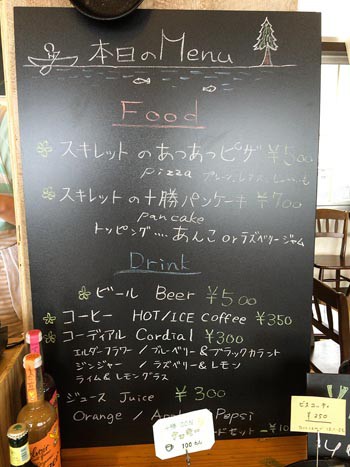 本日のMenu
Food
スキレットのあつあつピザ ¥500
pizza
スキレットの十勝パンケーキ ¥700
pancake
トッピング‥‥あんこ or ラズベリージャム
Drink
ビール Beer ¥500
コーヒー HOT/ICE Coffee ¥350
コーディアル Cordial ¥300
エルダーフラワー / ブルーベリー&ブラックカラント
ジンジャー / ラズベリー&レモン
ライム&レモングラス
ジュース Juice ¥300
Orange / Pepsi
セット
100
¥350